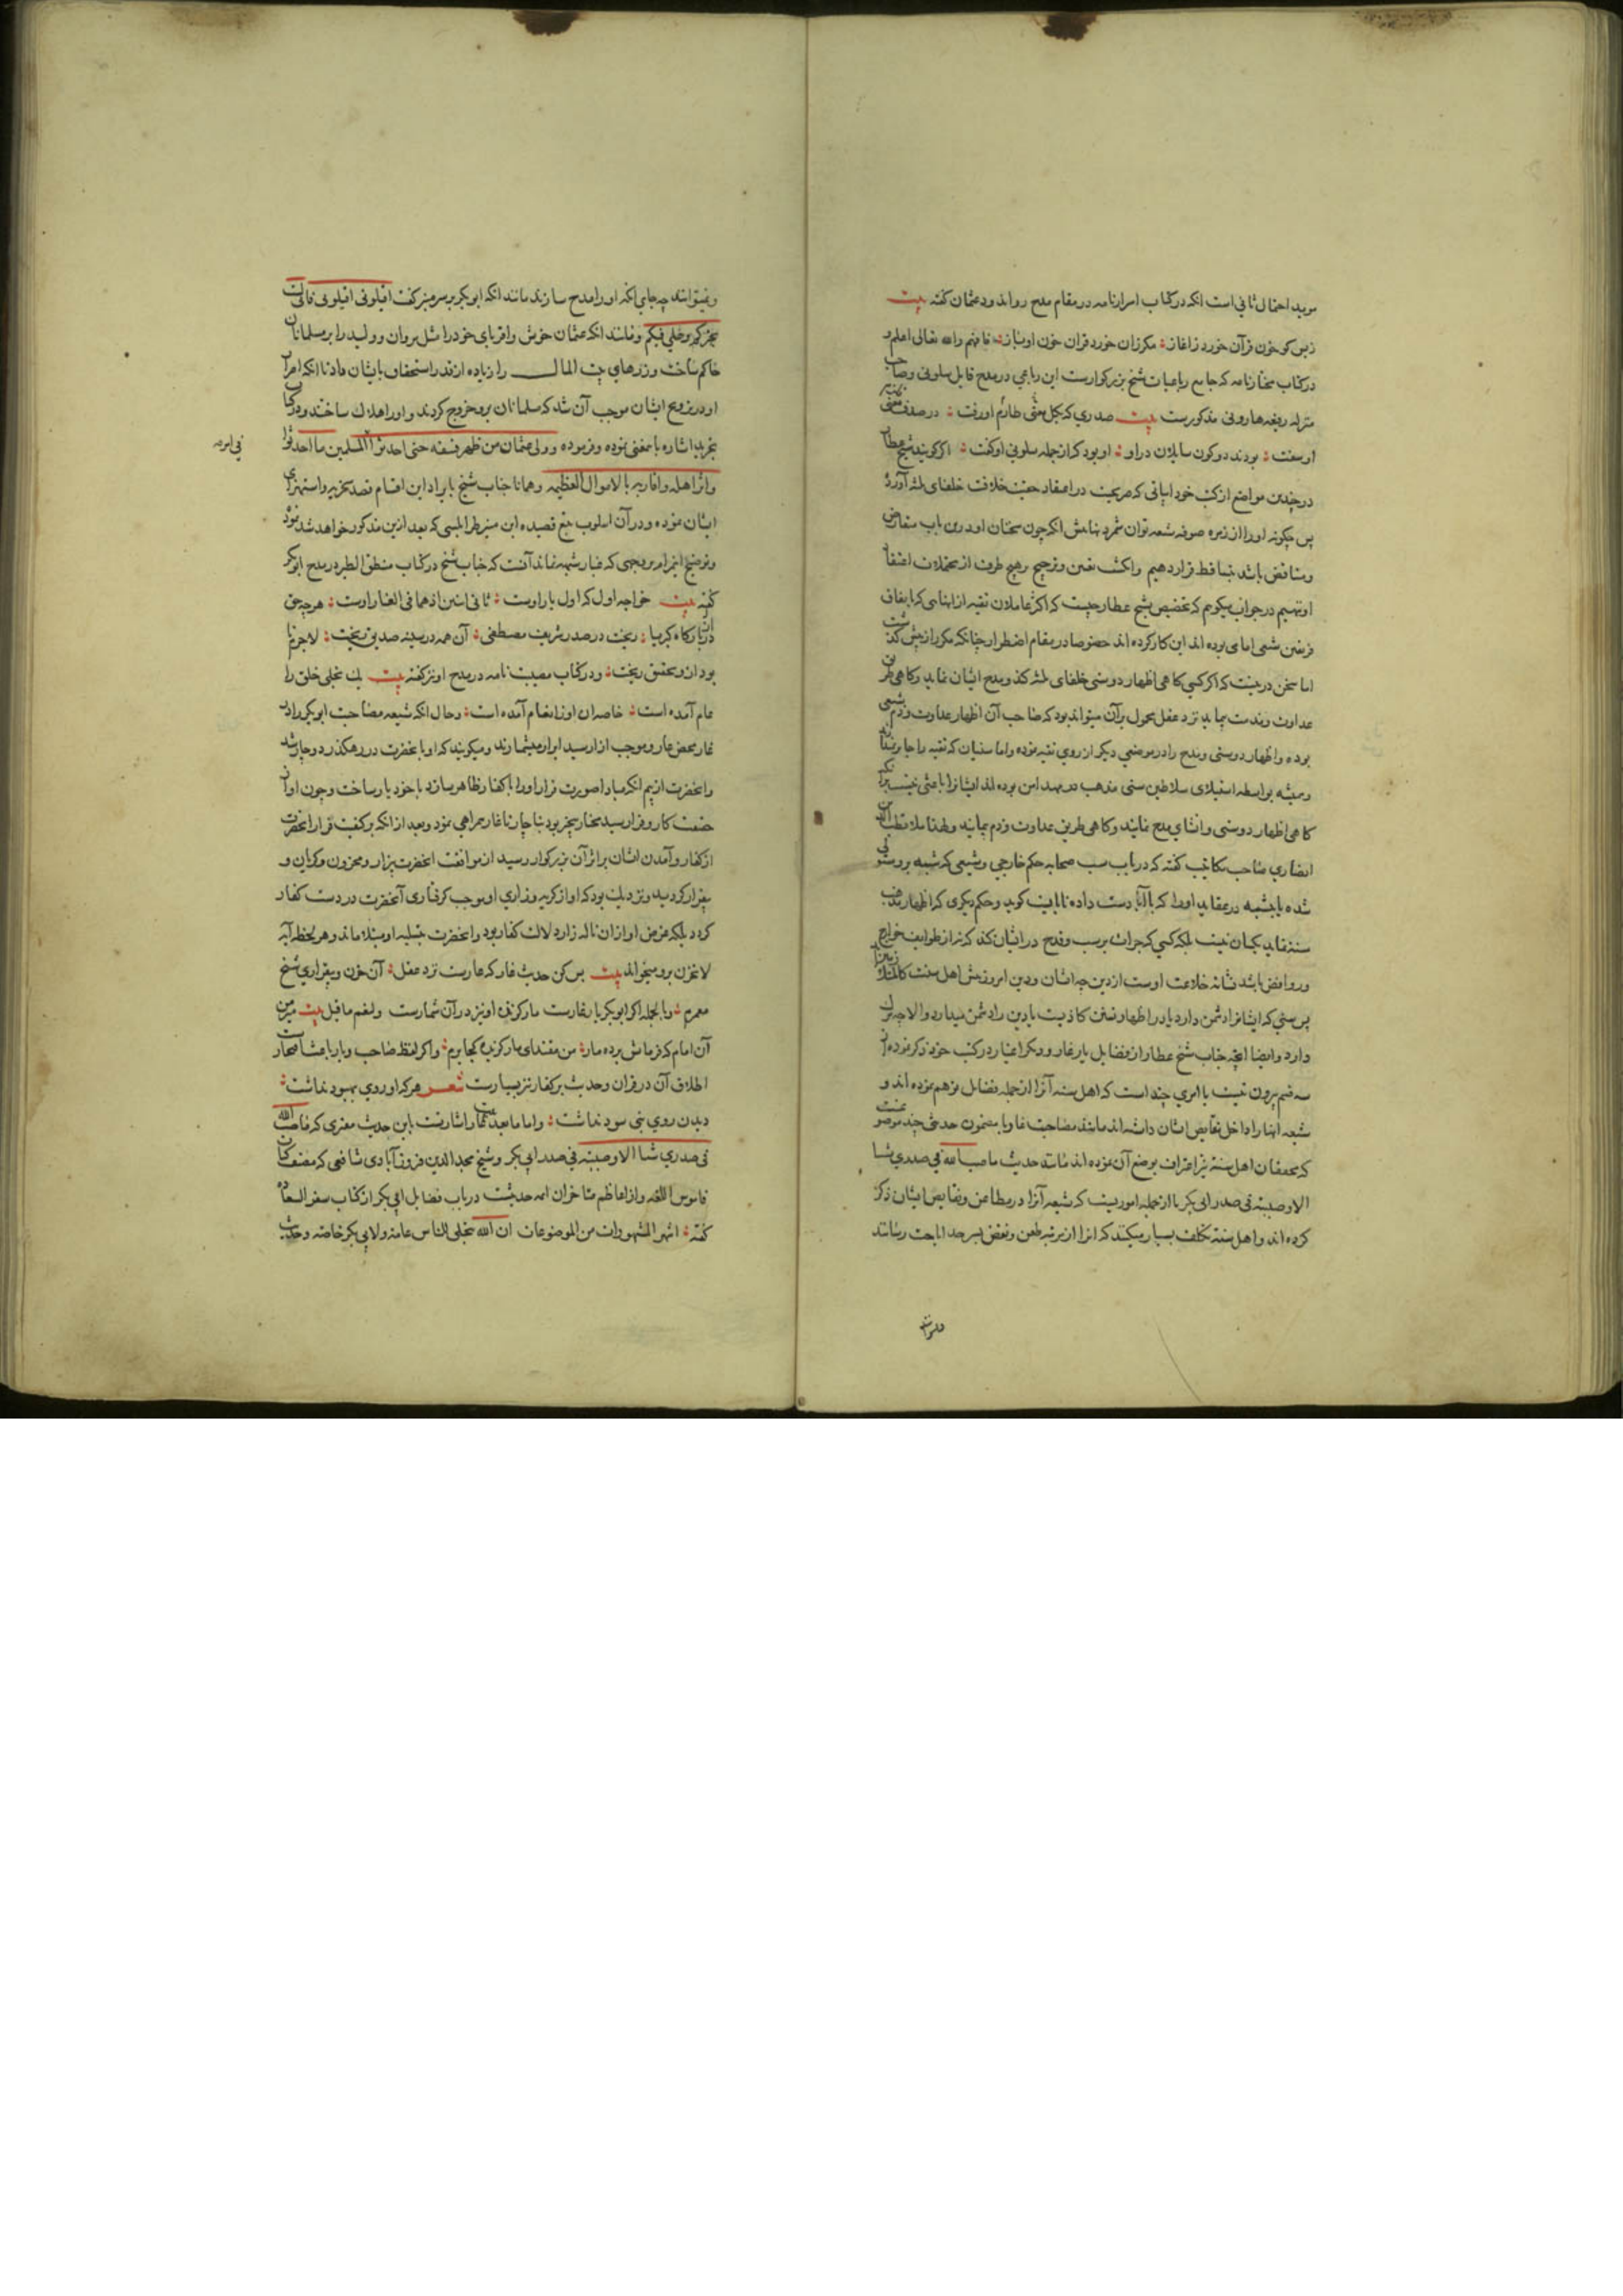 موید احتمال ثانی است انکه در کتاب اسرارنامه در مقام مدح روا ند و دعثمان کفته بیت
زبس کو خون قرآن خورد ز اغاز مکر زان خورد قران خون او باز فافهم والله تعالی اعلم و
در کتاب مختارنامه که جامع رباعیات شیخ بزرکوارست این رباعی در مدح قایل سلونی وصاحب
منزله رفیعه هارونی مذکورست بیت صدری که بکل طارم اورفت در صدف
او سفت بودند دو کون سایلان در او او بود که از جمله سلونی او کفت اکر کویند شیخ عطار
در چندین مواضع از کتب خود ابیاتی که صریحست در اعتقاد حقیت خلافت خلفای ثلثه آورده
پس چکونه او را از زمره صوفیه شیعه توان شمرد بنابرانکه چون سخنان او درین باب متعارض
ومتناقض باشد بتساقط قرار دهیم واکتفا بتعیین وترجیح هیچ طرف از محتملات اعتقاد
او ننهیم در جواب میکویم که تخصیص شیخ عطار چیست که اکثر عاملان تقیه از انهایی که باتفاق
فریقین شیعی امامی بوده اند این کار کرده اند خصوصا در مقام اضطرار چنانکه مکرر از پیش کذشت
اما سخن درینست که اکر کسی کاهی اظهار دوستی خلفای ثلثه کند ومدح ایشان نماید وکاهی طریق
عداوت ومذمت پیماید نزد عقل محمول برآن میتواند بود که صاحب آن اظهار عداوت وذم شیعی
بوده واظهار دوستی ومدح را در موضعی دیکر از روی تقیه نموده واما سنیان که تقیه را جایز ندانند
وهمیشه بواسطه استیلای سلاطین سنی مذهب در مهد امن بوده اند ایشانرا باعثی نیست برآنکه
کاهی اظهار دوستی وانشای مدح نمایند وکاهی طریق عداوت وذم پیمایند ولهذا ملا قطب الدین
انصاری صاحب مکاتیب کفته که در باب سب صحابه حکم خارجی وشیعی که شبهه بر وی مستولی
شده با شبهه در عقاید او را که باآبا دست داده تا بایت کوید وحکم دیکری که اظهار مذهب
سنت نماید یکسان نیست بلکه کسی که جرات بر سب وقدح در ایشان کند که نه از طوایف خوارج
وروافض باشد نشانه خلاعت اوست از دین چه ایشان ودین امروز پیش اهل سنت کالمتلازمین
پس سنی که ایشانرا دشمن دارد یا در اظهار تسنن کاذبست یا دین را دشمن میدارد والا چه بران
دارد وایضا انچه جناب شیخ عطار از فضایل یار غار ودیکر اغیار در کتب خود ذکر نموده از
سه قسم بیرون نیست یا امری چند است که اهل سنه آنرا از جمله فضایل توهم نموده اند و
شیعه اینها را داخل نقایص ایشان داشته اند مانند مصاحبت غار ویا مضمون حدیثی چند موضوعست
که محققان اهل سنه نیز اعتراف بوضع آن نموده اند مانند حدیث ما صب الله فی صدری شیئا
الا وصببته فی صدر ابی بکر یا از جمله اموریست که شیعه آنرا در مطاعن ونقایص ایشان ذکر
کرده اند واهل سنه تکلف بسیار میکنند که انرا از مرتبه طعن ونقض بسرحد اباحت رسانند
ونمیتوانند چه جای انکه او را مدح سازند مانند انکه ابوبکر بر سر منبر کفت اقیلونی اقیلونی فانی لست
بخیرکم وعلی فیکم ومانند انکه عثمان خویش واقربای خود را مثل مروان وولید را بر مسلمانان
حاکم ساخت وزرهای بیت المال را زیاده از قدر استحقاق بایشان داد تا انکه امرا
او در ترویج ایشان موجب آن شد که مسلمانان برو خروج کردند واو را هلاک ساختند ودر کتاب
تجرید اشاره بآن معنی نموده وفرموده وولی عثمان من ظهر فسقه حتی احدثوا المسلمین ما احدثوا
فی امر
واثر اهله واقاربه بالاموال العظیمه وهمانا جناب شیخ بایراد این اقسام قصد سخریه واستهزای
ایشان نموده ودر آن اسلوب تتبع قصیده ابن منیر طرابلسی که بعد ازین مذکور خواهد شد نموده
وتوضیح اینمرام بر وجهی که غبار شبهه نماند آنست که جناب شیخ در کتاب منطق الطیر در مدح ابوبکر
کفته بیت خواجه اول که اول یار اوست ثانی اثنین اذهما فی الغار اوست هرچه حق
از بارکاه کبریا ریخت در صدر شریف مصطفی آن همه در سینه صدیق ریخت لاجرم تا
بود ازو تحقیق ریخت ودر کتاب مصیبت نامه در مدح او نیز کفته بیت یک تجلی خلق را
عام آمده است خاص ان او ز انعام آمده است وحال انکه شیعه مصاحبت ابوبکر را در
غار محض عار وموجب ازار سید ابرار میشمارند ومیکویند که او با نحضرت در رهکذر دوچار شد
وانحضرت از بیم انکه مبادا صورت فرار او را با کفار ظاهر سازد با خود یار ساخت وچون او از
حقیقت کار وفرار سید مختار بیخبر بود ناچار تا غار همراهی نمود وبعد از انکه بر کیفیت فرار انحضرت
از کفار وآمدن ایشان بر اثر آن بزرکوار رسید از موافقت انحضرت بیزار ومحزون وکریان و
بیقرار کردید ونزدیک بود که اواز کریه وزاری او موجب کرفتاری آنحضرت در دست کفار
کردد بلکه غرض او از ان ناله زار دلالت کفار بود وانحضرت بتسلیه او مبتلا ماند وهر لحظه آیه
لا تحزن برو میخواند بیت بس کن حدیث غار که عارست نزد عقل آن حزن وبیقراری شیخ
معمرم وبالجمله اکر ابوبکر یار غارست مار کزنده او نیز در آن شمارست ولنعم ما قیل بیت من
آن امام که فرمانش برده مار من مقتدای مار کزیده کجا برم واکر لفظ صاحب ویار باعث افتخارست
اطلاق آن در قران وحدیث بر کفار نیز بسیارست شعر هر که او روی بهبود نداشت
دیدن روی نبی سود نداشت واما مابعد بیت عطار اشارتست باین حدیث مفتری که ما صب الله
فی صدری شیئا الا وصببته فی صدر ابی بکر وشیخ مجد الدین فیروزآبادی شافعی که مصنف کتاب
قاموس اللغه واز اعاظم متاخران ائمه حدیثست در باب فضایل ابی بکر از کتاب سفر السعاده
کفته اشهر المشهورات من الموضوعات ان الله یتجلی للناس عامة ولابی بکر خاصه وحدیث